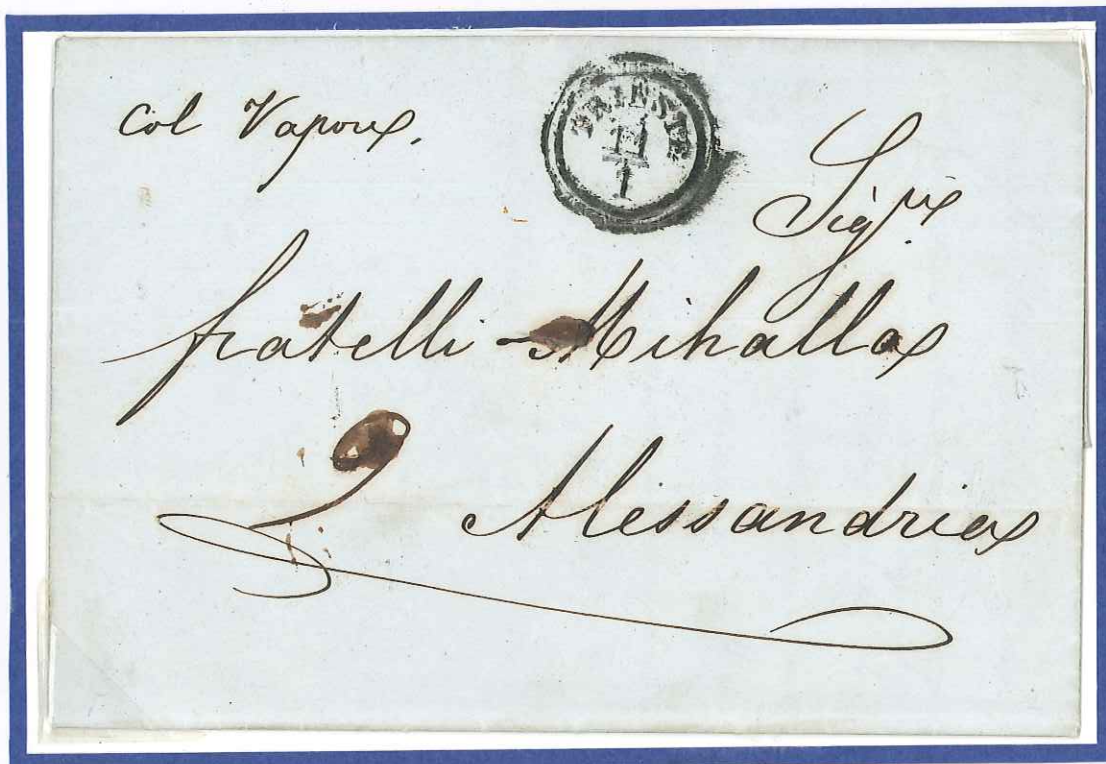 Col Vapore,
TRIEST
11
1
Sigri
fratelli Mihalla
9 Alessandria